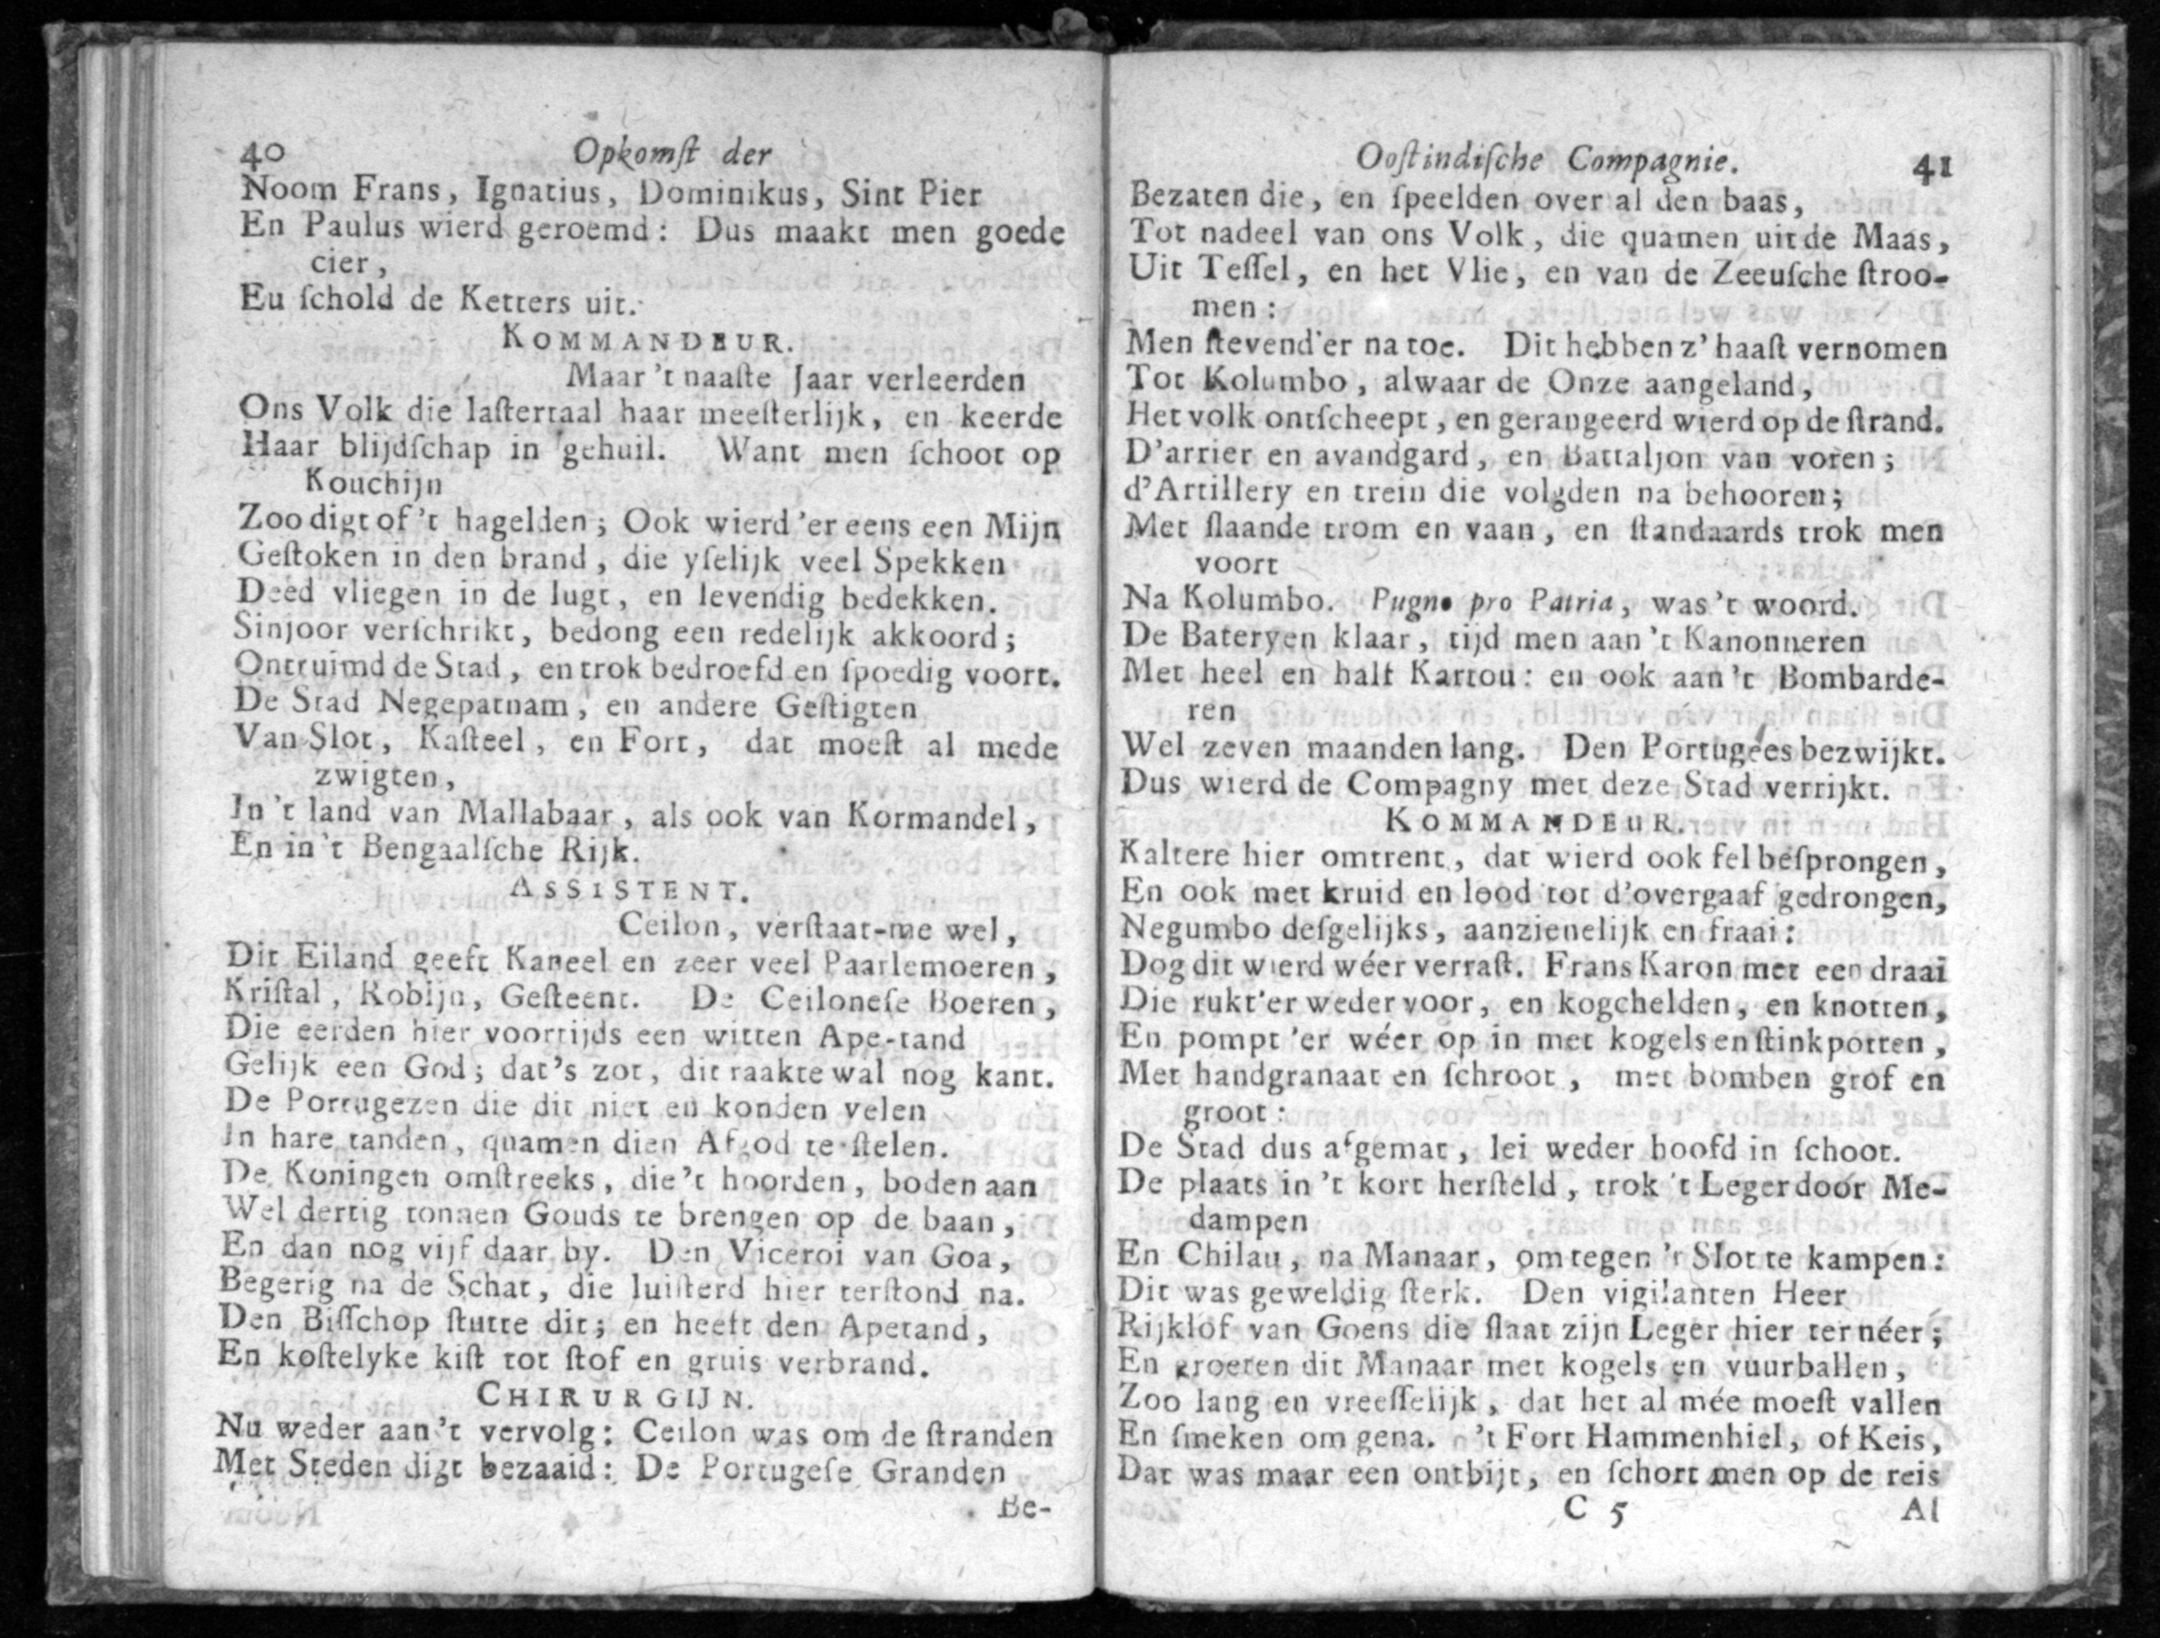 40 Opkomſt der
Noom Frans, Ignatius, Dominikus, Sint Pier
En Paulus wierd geroemd: Dus maakt men goede
cier,
Eu ſchold de Ketters uit.
KOMMANDEUR.
Maar 't naaſte Jaar verleerden
Ons Volk die laſtertaal haar meeſterlijk, en keerde
Haar blijdſchap in gehuil. Want men ſchoot op
Kouchijn
Zoo digt of 't hagelden; Ook wierd 'er eens een Mijn
Geſtoken in den brand, die yſelijk veel Spekken
Deed vliegen in de lugt, en levendig bedekken.
Sinjoor verſchrikt, bedong een redelijk akkoord;
Ontruimd de Stad, en trok bedroefd en ſpoedig voort.
De Stad Negepatnam, en andere Geſtigten
Van Slot, Kaſteel, en Fort, dat moeſt al mede
zwigten,
In 't land van Mallabaar, als ook van Kormandel,
En in 't Bengaalſche Rijk.
ASSISTENT.
Ceilon, verſtaat-me wel,
Dit Eiland geeft Kaneel en zeer veel Paarlemoeren,
Kriſtal, Robijn, Geſteent. De Ceiloneſe Boeren,
Die eerden hier voortijds een witten Ape-tand
Gelijk een God; dat's zot, dit raakte wal nog kant.
De Portugezen die dit niet en konden velen
In hare tanden, quamen dien Afgod te ſtelen.
De Koningen omſtreeks, die 't hoorden, boden aan
Wel dertig tonnen Gouds te brengen op de baan,
En dan nog vijf daar by. Den Viceroi van Goa,
Begerig na de Schat, die luiſterd hier terſtond na.
Den Biſſchop ſtutte dit; en heeft den Apetand,
En koſtelyke kiſt tot ſtof en gruis verbrand.
CHIRURGIJN.
Nu weder aan 't vervolg: Ceilon was om de ſtranden
Met Steden digt bezaaid: De Portugeſe Granden
Be-
Ooſtindiſche Compagnie. 41
Bezaten die, en ſpeelden over al den baas,
Tot nadeel van ons Volk, die quamen uit de Maas,
Uit Teſſel, en het Vlie, en van de Zeeuſche ſtroo-
men:
Men ſtevend'er na toe. Dit hebben z' haaſt vernomen
Tot Kolumbo, alwaar de Onze aangeland,
Het volk ontſcheept, en gerangeerd wierd op de ſtrand.
D'arrier en avandgard, en Battaljon van voren;
d'Artillery en trein die volgden na behooren;
Met ſlaande trom en vaan, en ſtandaards trok men
voort
Na Kolumbo. Pugno pro Patria, was 't woord.
De Bateryen klaar, tijd men aan 't Kanonneren
Met heel en half Kartou: en ook aan 't Bombarde-
ren
Wel zeven maanden lang. Den Portugees bezwijkt.
Dus wierd de Compagny met deze Stad verrijkt.
KOMMANDEUR.
Kaltere hier omtrent, dat wierd ook fel beſprongen,
En ook met kruid en lood tot d'overgaaf gedrongen,
Negumbo deſgelijks, aanzienelijk en fraai:
Dog dit wierd wéer verraſt. Frans Karon met een draai
Die rukt'er weder voor, en kogchelden, en knotten,
En pompt 'er wéer op in met kogels en ſtinkpotten,
Met handgranaat en ſchroot, met bomben grof en
groot:
De Stad dus afgemat, lei weder hoofd in ſchoot.
De plaats in 't kort herſteld, trok 't Leger door Me-
dampen
En Chilau, na Manaar, om tegen 't Slot te kampen:
Dit was geweldig ſterk. Den vigilanten Heer
Rijklof van Goens die ſlaat zijn Leger hier ter néer;
En groeten dit Manaar met kogels en vuurballen,
Zoo lang en vreeſſelijk, dat het al mée moeſt vallen
En ſmeken om gena. 't Fort Hammenhiel, of Keis,
Dat was maar een ontbijt, en ſchort men op de reis
C 5 Al